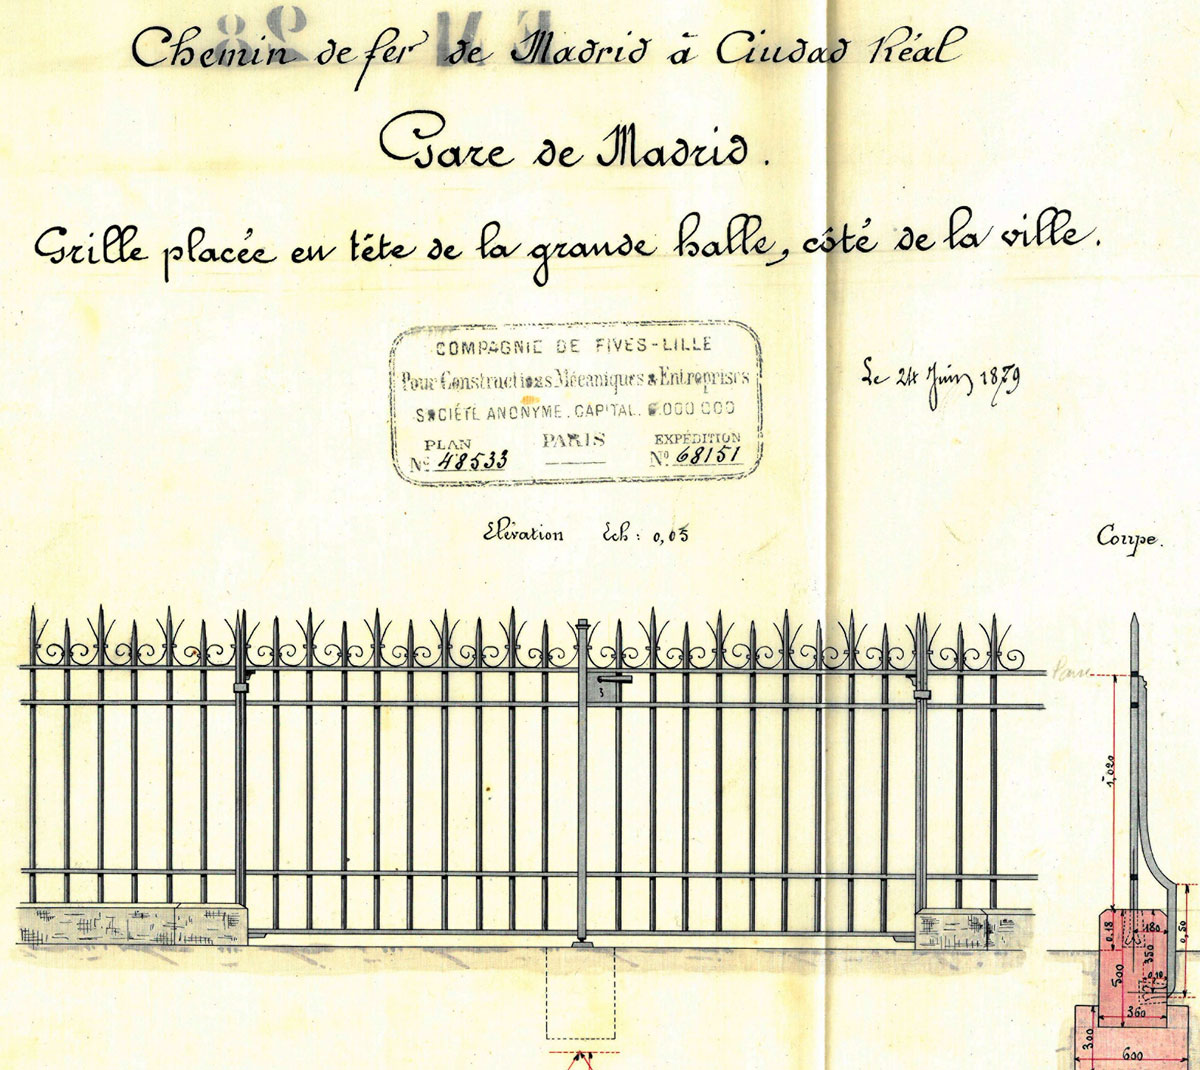 Chemin de fer de Madrid à Ciudad Réal
Gare de Madrid.
Grille placée en tête de la grande halle, côté de la ville.
COMPAGNIE DE FIVES-LILLE
Pour Constructions Mécaniques & Entreprises
SOCIÉTÉ ANONYME. CAPITAL. 6.000 000
PLAN PARIS EXPÉDITION
Nº 48533 Nº 68151
Le 24 Juin 1879
Elévation Ech : 0,05
Coupe.
1,020
0,18
180
350
0,50
500
0,10
360
300
600